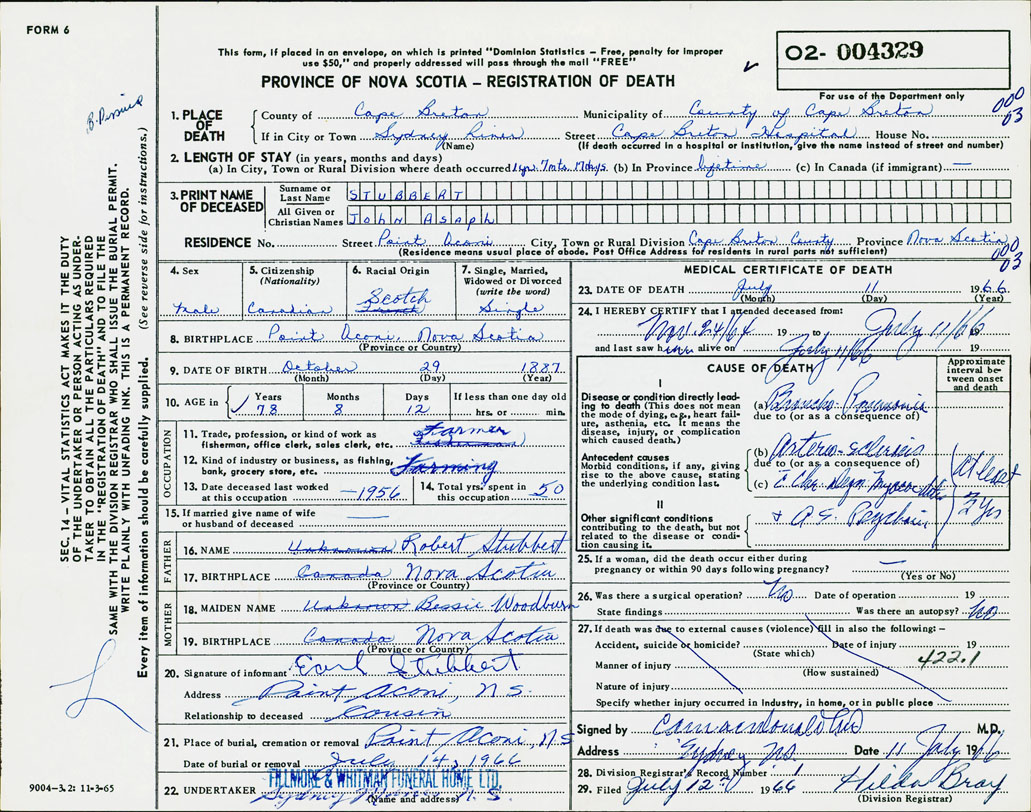 FORM 6
This form, if placed in an envelope, on which is printed "Dominion Statistics – Free, penalty for improper
use $50," and properly addressed will pass through the mail "FREE"
PROVINCE OF NOVA SCOTIA – REGISTRATION OF DEATH
02- 004329
For use of the Department only
000
03
1. PLACE OF DEATH County of Cape Breton Municipality of County of Cape Breton
If in City or Town Sydney River Street Cape Breton Hospital House No.
(Name) (If death occurred in a hospital or institution, give the name instead of street and number)
2. LENGTH OF STAY (in years, months and days)
(a) In City, Town or Rural Division where death occurred 1yr. 7mts. 17dys. (b) In Province lifetime (c) In Canada (if immigrant) —
3. PRINT NAME OF DECEASED Surname or Last Name STUBBERT
All Given or Christian Names JOHN ASAPH
RESIDENCE No. Street Point Aconi City, Town or Rural Division Cape Breton County Province Nova Scotia
(Residence means usual place of abode. Post Office Address for residents in rural parts not sufficient)
000
03
4. Sex Male
5. Citizenship (Nationality) Canadian
6. Racial Origin Scotch
7. Single, Married, Widowed or Divorced (write the word) Single
8. BIRTHPLACE Point Aconi, Nova Scotia
(Province or Country)
9. DATE OF BIRTH October 29 1887
(Month) (Day) (Year)
10. AGE in Years 78 Months 8 Days 12 If less than one day old hrs. or min.
OCCUPATION
11. Trade, profession or kind of work as fisherman, office clerk, sales clerk, etc. Farmer
12. Kind of industry or business, as fishing, bank, grocery store, etc. Farming
13. Date deceased last worked at this occupation —1956
14. Total yrs. spent in this occupation 50
15. If married give name of wife or husband of deceased —
FATHER
16. NAME Unknown Robert Stubbert
17. BIRTHPLACE Canada Nova Scotia
(Province or Country)
MOTHER
18. MAIDEN NAME Unknown Bessie Woodburn
19. BIRTHPLACE Canada Nova Scotia
(Province or Country)
20. Signature of informant Earl Stubbert
Address Point Aconi, N.S.
Relationship to deceased Cousin
21. Place of burial, cremation or removal Point Aconi, N.S
Date of burial or removal July 14, 1966
FILLMORE & WHITMAN FUNERAL HOME LTD.
22. UNDERTAKER Sydney N.S.
(Name and address)
MEDICAL CERTIFICATE OF DEATH
23. DATE OF DEATH July 11 1966
(Month) (Day) (Year)
24. I HEREBY CERTIFY that I attended deceased from:
Nov. 24/64 19 to July 11/66 19
and last saw him alive on July 11/66 19
CAUSE OF DEATH
Approximate interval between onset and death
I
Disease or condition directly leading to death (This does not mean the mode of dying, e.g., heart failure, asthenia, etc. It means the disease, injury, or complication which caused death.)
(a) Broncho Pneumonia
due to (or as a consequence of)
Antecedent causes
Morbid conditions, if any, giving rise to the above cause, stating the underlying condition last.
(b) Arterio-sclerosis
due to (or as a consequence of)
(c) Chr. Degn. Myocarditis
At least 2 yrs
II
Other significant conditions contributing to the death, but not related to the disease or condition causing it.
+ A.S. Psychosis
25. If a woman, did the death occur either during pregnancy or within 90 days following pregnancy? —
(Yes or No)
26. Was there a surgical operation? No Date of operation 19
State findings Was there an autopsy? No
27. If death was due to external causes (violence) fill in also the following:–
Accident, suicide or homicide? Date of injury 19
(State which)
422.1
Manner of injury
(How sustained)
Nature of injury
Specify whether injury occurred in industry, in home, or in public place
Signed by M.D.
Address Sydney NS. Date 11 July 1966
28. Division Registrar's Record Number 1
29. Filed July 12th 1966 Hilda Bray
(Division Registrar)
SEC. 14 – VITAL STATISTICS ACT MAKES IT THE DUTY
OF THE UNDERTAKER OR PERSON ACTING AS UNDER-
TAKER TO OBTAIN ALL THE PARTICULARS REQUIRED
IN THE "REGISTRATION OF DEATH" AND TO FILE THE
SAME WITH THE DIVISION REGISTRAR WHO SHALL ISSUE THE BURIAL PERMIT.
WRITE PLAINLY WITH UNFADING INK. THIS IS A PERMANENT RECORD.
Every item of information should be carefully supplied. (See reverse side for instructions.)
9004-3.2: 11-3-65